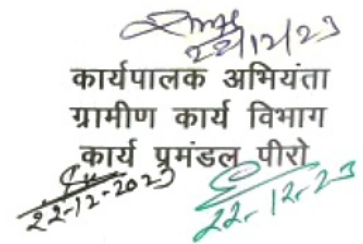 22/12/23
कार्यपालक अभियंता
ग्रामीण कार्य विभाग
कार्य प्रमंडल पीरो
22-12-2023
22-12-23